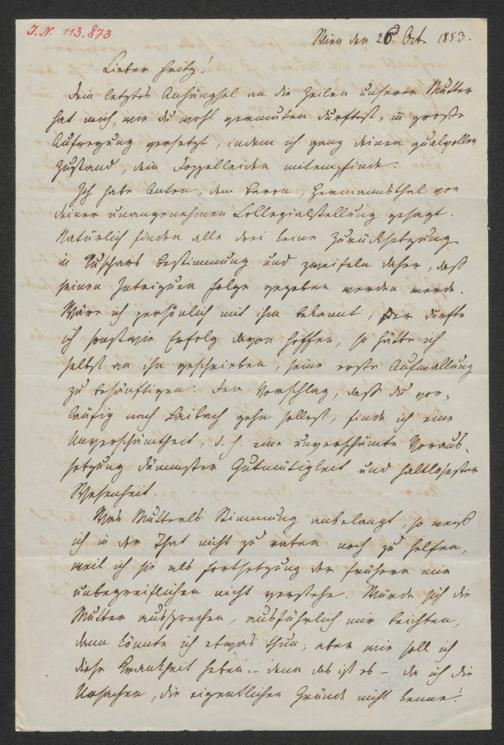 J.N. 113.873
Wien den 26. Oct. 1853.
Lieber Fritz!
Dein letztes Anhängsel an die Zeilen unserer Mutter
hat mich, wie du wohl vermuten durftest, in große
Aufregung versetzt, indem ich ganz deinen qualvollen
Zustand, dein Doppelleiden mitempfinde.
Ich habe Anton, dem Baron, Hermannsthal von
deiner unangenehmen Collegialstellung gesagt.
Natürlich finden alle drei keine Zurücksetzung
in Bestimmung und zweifeln daher, daß
seinen Intriguen Folge gegeben werden werde.
Wäre ich persönlich mit ihm bekannt, oder dürfte
ich sonstwie Erfolg davon hoffen, so hätte ich
selbst an ihn geschrieben, seine erste Aufwallung
zu besänftigen. Den Vorschlag, daß du vor-
läufig nach Laibach gehn sollest, finde ich eine
Unverschämtheit, d.h. eine unverschämte Voraus-
setzung dümmster Gutmütigkeit und haltlosester
Wesenheit.
Was Mutterls Stimmung anbelangt, so weiß
ich in der That nicht zu raten noch zu helfen,
weil ich sie als Fortsetzung der frühern mir
unbegreiflichen nicht verstehe. Würde sich die
Mutter aussprechen, ausführlich mir beichten,
dann könnte ich etwas thun; aber wie soll ich
diese Krankheit heben – denn das ist es – da ich die
Ursachen, die eigentlichen Gründe nicht kenne!